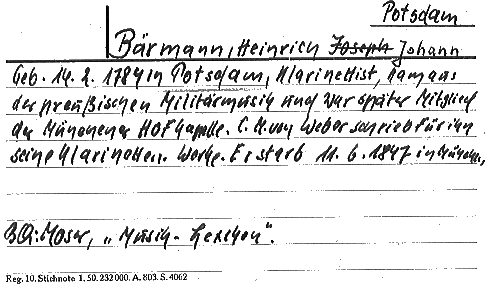 Potsdam
Bärmann, Heinrich Joseph Johann
Geb. 14. 2. 1784 in Potsdam, Klarinettist, kam aus
der preußischen Militärmusik und war später Mitglied
der Münchener Hofkapelle. C. M. von Weber schrieb für ihn
seine Klarinetten. Werke. Er starb 11. 6. 1847 in München,
BQ: Moser, „Musik-Lexikon".
Reg. 10. Stichnote 1. 50. 232000. A. 803. S. 4062